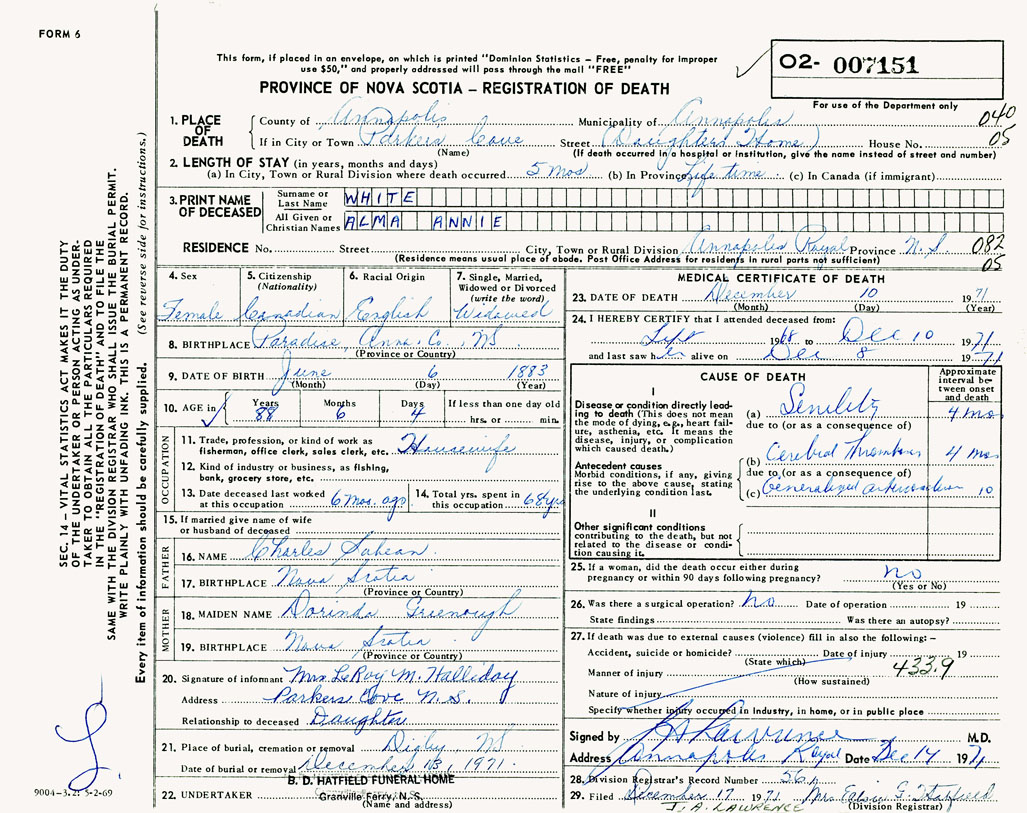 FORM 6
This form, if placed in an envelope, on which is printed "Dominion Statistics - Free, penalty for improper
use $50," and properly addressed will pass through the mail "FREE"
PROVINCE OF NOVA SCOTIA - REGISTRATION OF DEATH
02- 007151
For use of the Department only
SEC. 14 - VITAL STATISTICS ACT MAKES IT THE DUTY
OF THE UNDERTAKER OR PERSON ACTING AS UNDER-
TAKER TO OBTAIN ALL THE PARTICULARS REQUIRED
IN THE "REGISTRATION OF DEATH" AND TO FILE THE
SAME WITH THE DIVISION REGISTRAR WHO SHALL ISSUE THE BURIAL PERMIT.
WRITE PLAINLY WITH UNFADING INK. THIS IS A PERMANENT RECORD.
Every item of information should be carefully supplied. (See reverse side for instructions.)
1. PLACE OF DEATH County of Annapolis Municipality of Annapolis 040
If in City or Town Parkers Cove Street (Daughters Home) House No. 05
(Name) (If death occurred in a hospital or institution, give the name instead of street and number)
2. LENGTH OF STAY (in years, months and days)
(a) In City, Town or Rural Division where death occurred 5 mos (b) In Province Life time (c) In Canada (if immigrant)
3. PRINT NAME OF DECEASED Surname or Last Name WHITE
All Given or Christian Names ALMA ANNIE
RESIDENCE No. Street City, Town or Rural Division Annapolis Royal Province N.S. 082
(Residence means usual place of abode. Post Office Address for residents in rural parts not sufficient) 05
4. Sex 5. Citizenship (Nationality) 6. Racial Origin 7. Single, Married, Widowed or Divorced (write the word)
Female Canadian English Widowed
8. BIRTHPLACE Paradise, Anna. Co., NS
(Province or Country)
9. DATE OF BIRTH June 6 1883
(Month) (Day) (Year)
10. AGE in Years 88 Months 6 Days 4 If less than one day old hrs. or min.
OCCUPATION
11. Trade, profession, or kind of work as fisherman, office clerk, sales clerk, etc. Housewife
12. Kind of industry or business, as fishing, bank, grocery store, etc.
13. Date deceased last worked at this occupation 6 mos. ago 14. Total yrs. spent in this occupation 68 yrs
15. If married give name of wife or husband of deceased
FATHER
16. NAME Charles Sabean
17. BIRTHPLACE Nova Scotia
(Province or Country)
MOTHER
18. MAIDEN NAME Dorinda Greenough
19. BIRTHPLACE Nova Scotia
(Province or Country)
20. Signature of informant Mrs. LeRoy M. Halliday
Address Parkers Cove N.S.
Relationship to deceased Daughter
21. Place of burial, cremation or removal Digby, NS
Date of burial or removal December 13, 1971
B. D. HATFIELD FUNERAL HOME
22. UNDERTAKER Granville Ferry, N. S.
(Name and address)
9004-3.2: 5-2-69
MEDICAL CERTIFICATE OF DEATH
23. DATE OF DEATH December 10 1971
(Month) (Day) (Year)
24. I HEREBY CERTIFY that I attended deceased from:
Sept 1968 to Dec 10 1971
and last saw her alive on Dec 8 1971
CAUSE OF DEATH
Approximate interval between onset and death
I
Disease or condition directly leading to death (This does not mean the mode of dying, e.g., heart failure, asthenia, etc. It means the disease, injury, or complication which caused death.)
(a) Senility 4 mos
due to (or as a consequence of)
Antecedent causes
Morbid conditions, if any, giving rise to the above cause, stating the underlying condition last.
(b) Cerebral Thrombosis 4 mos
due to (or as a consequence of)
(c) Generalized arteriosclerosis 10
II
Other significant conditions contributing to the death, but not related to the disease or condition causing it.
25. If a woman, did the death occur either during pregnancy or within 90 days following pregnancy? no
(Yes or No)
26. Was there a surgical operation? No Date of operation 19
State findings Was there an autopsy?
27. If death was due to external causes (violence) fill in also the following: -
Accident, suicide or homicide? Date of injury 19
(State which)
Manner of injury 433.9
(How sustained)
Nature of injury
Specify whether injury occured in Industry, in home, or in public place
Signed by Lawrence M.D.
Address Annapolis Royal Date Dec 14 1971
28. Division Registrar's Record Number 56
29. Filed December 17 1971 Mrs. G. Hatfield
J. A. LAWRENCE (Division Registrar)